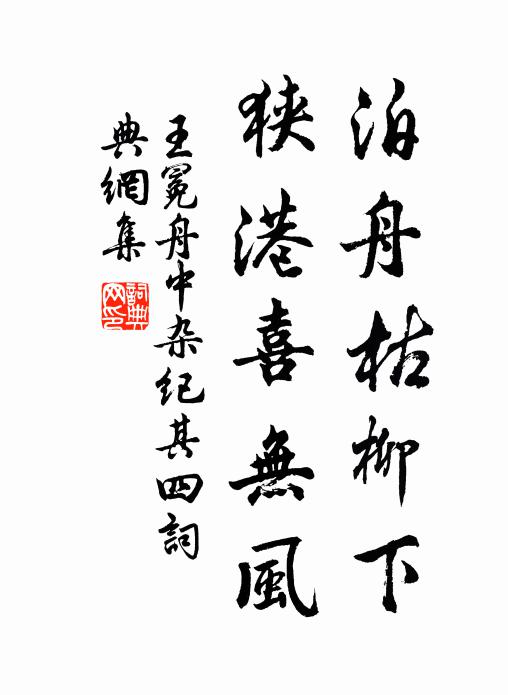 泊舟枯柳下
狹港喜無風
王冕舟中杂纪其四詞
典網集
詞典
网印